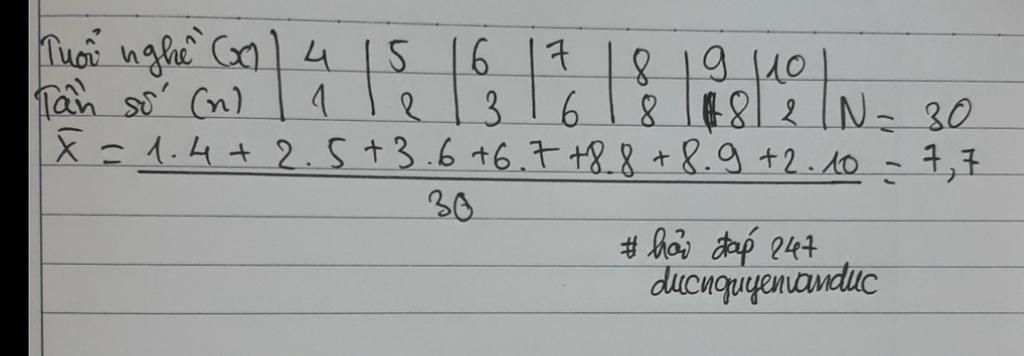 Tuổi nghề (x) | 4 | 5 | 6 | 7 | 8 | 9 | 10 |
Tần số (n) | 1 | 2 | 3 | 6 | 8 | 8 | 2 | N = 30
X̄ = 1.4 + 2.5 + 3.6 + 6.7 + 8.8 + 8.9 + 2.10 = 7,7
30
# hỏi đáp 247
ducnguyenvanduc